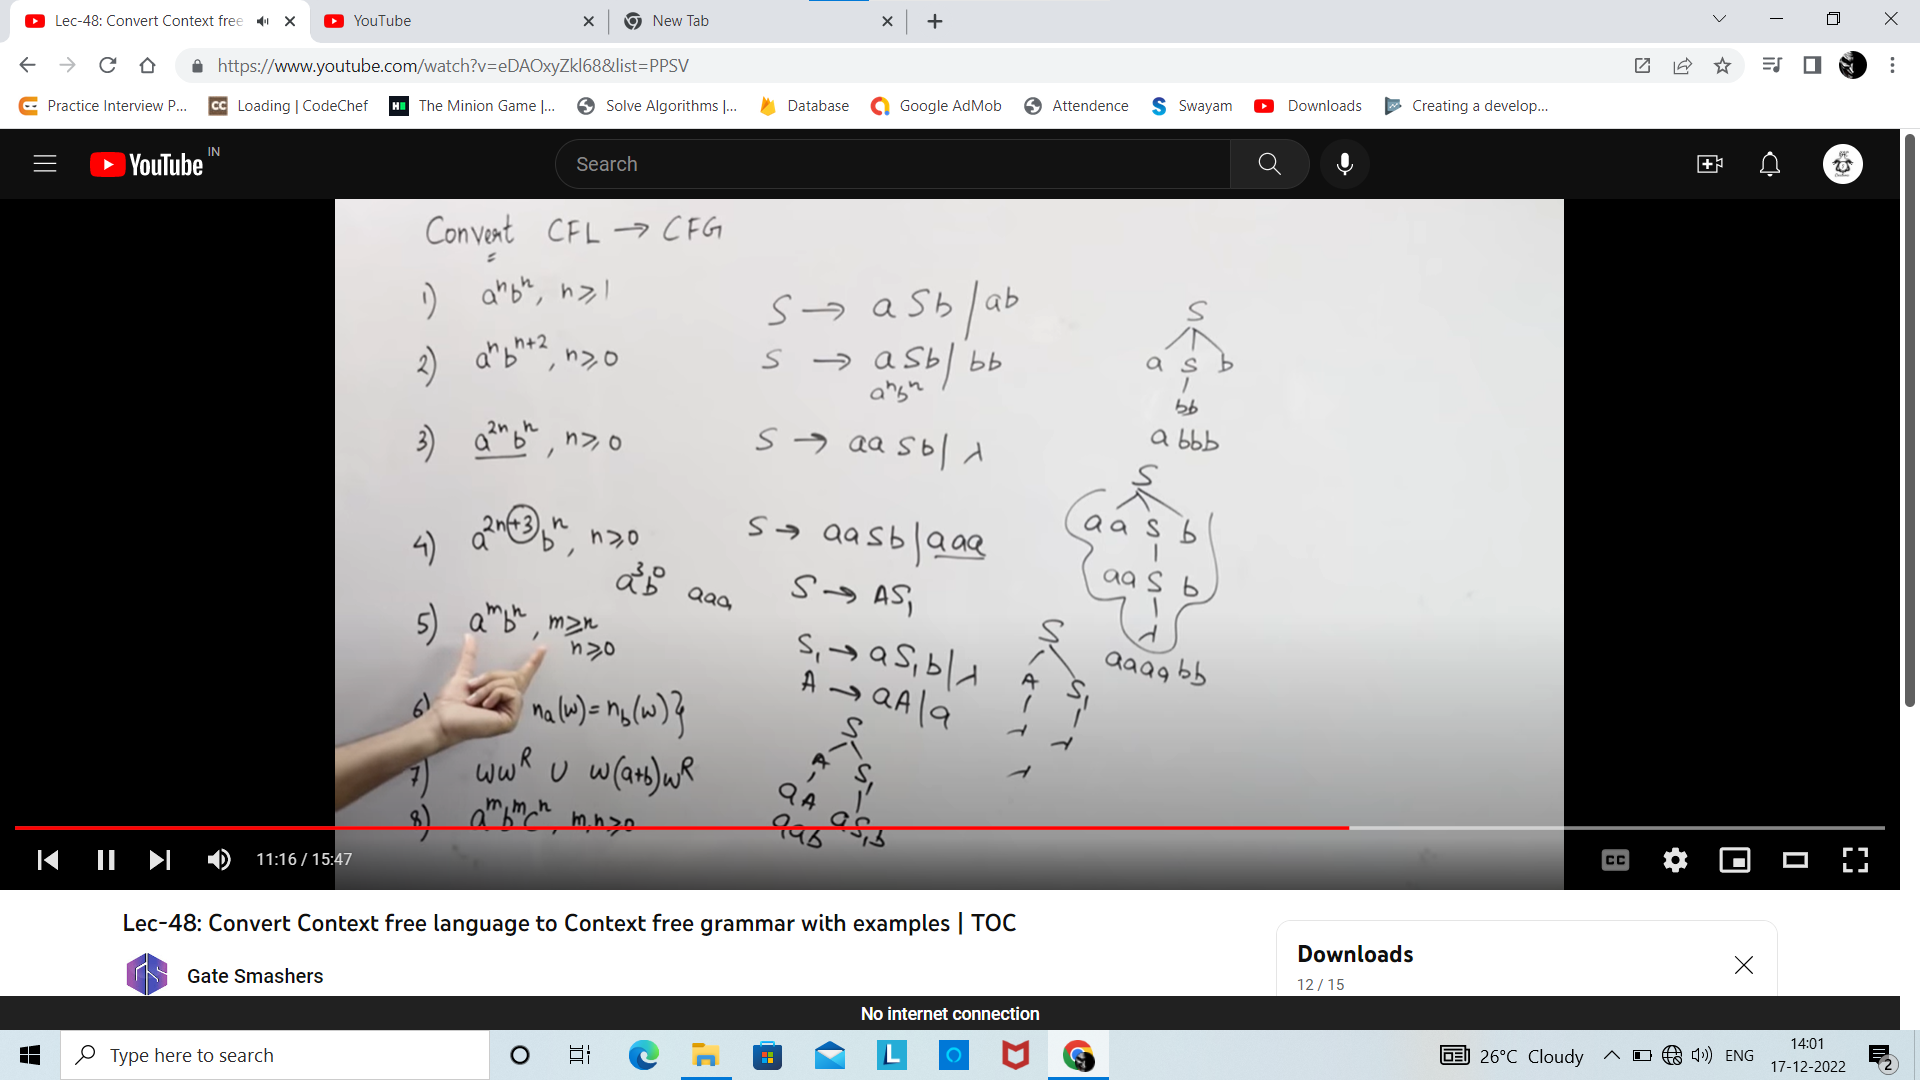 Lec-48: Convert Context free
YouTube
New Tab
https://www.youtube.com/watch?v=eDAOxyZkl68&list=PPSV
Practice Interview P...
Loading | CodeChef
The Minion Game |...
Solve Algorithms |...
Database
Google AdMob
Attendence
Swayam
Downloads
Creating a develop...
YouTube IN
Search
Convert CFL → CFG
1) aⁿbⁿ, n≥1 S → aSb/ab
2) aⁿbⁿ⁺², n≥0 S → aSb/bb
aⁿbⁿ
3) a²ⁿbⁿ, n≥0 S → aaSb/λ
4) a²ⁿ⁺³bⁿ, n≥0 S → aaSb/aaa
a³b⁰ aaa
5) aᵐbⁿ, m≥n
n≥0
S → AS₁
S₁ → aS₁b/λ
A → aA/a
6) nₐ(w)=n_b(w)}
7) wwᴿ ∪ w(a+b)wᴿ
8) aᵐbᵐcⁿ, m,n≥0
S
A S₁
aA aS₁b
aab
S
a S b
bb
abbb
S
aa S b
aa S b
λ
aaaabb
S
A S₁
λ λ
λ
11:16 / 15:47
CC
Lec-48: Convert Context free language to Context free grammar with examples | TOC
Gate Smashers
Downloads
12 / 15
No internet connection
Type here to search
26°C Cloudy
ENG
14:01
17-12-2022
2